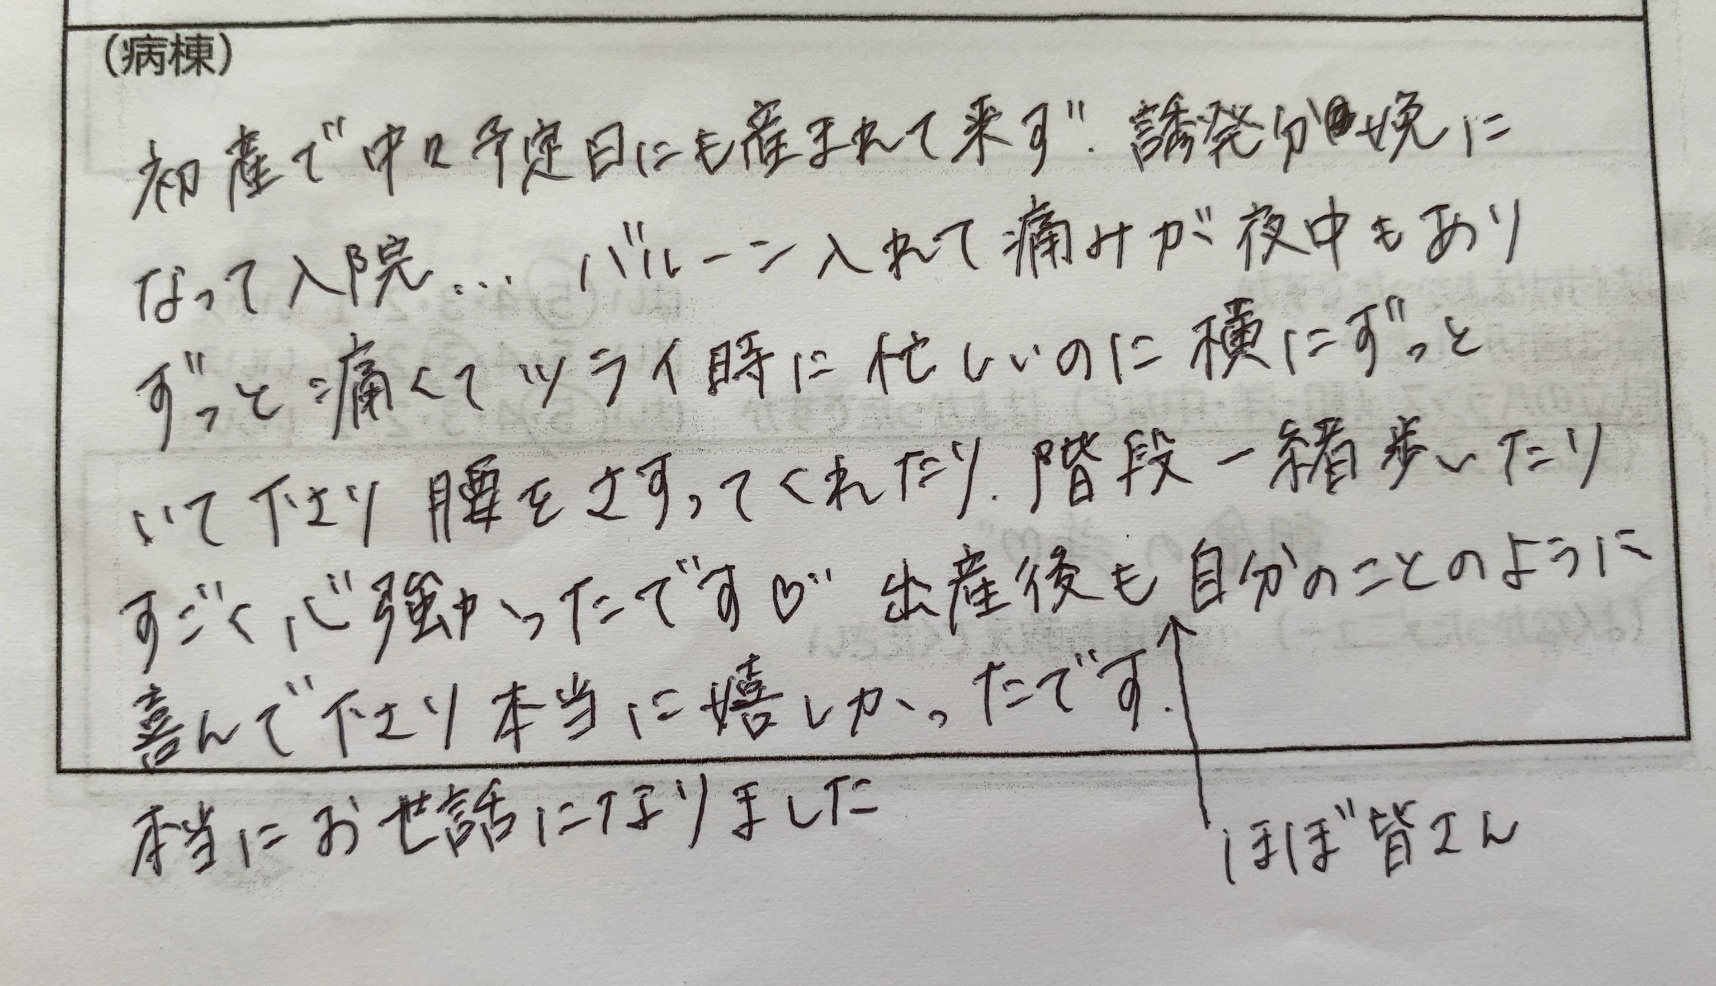 (病棟)
初産で中々予定日にも産まれて来ず、誘発分娩に
なって入院… バルーン入れて痛みが夜中もあり
ずっと痛くてツライ時に忙しいのに横にずっと
いて下さり腰をさすってくれたり、階段一緒歩いたり
すごく心強かったです♡ 出産後も自分のことのように
喜んで下さり本当に嬉しかったです.
本当にお世話になりました
ほぼ皆さん